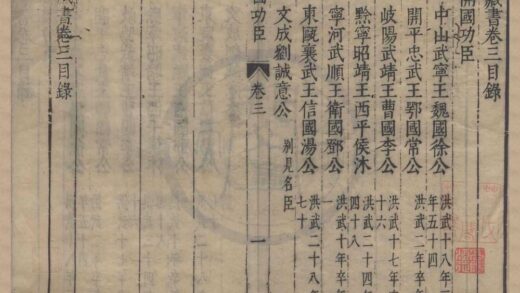 藏書卷三目錄
開國功臣
中山武寧王魏國徐公 洪武十八年
年五十四
開平忠武王鄂國常公 洪武二年卒年
岐陽武靖王曹國李公 洪武十七年
十六
黔寧昭靖王西平侯沐 洪武二十四年
四十八
寧河武順王衛國鄧公 洪武十年卒年
一
東甌襄武王信國湯公 洪武二十八年
七十
文成劉誠意公 別見名臣
國功臣 卷三 一
藏書卷三目錄